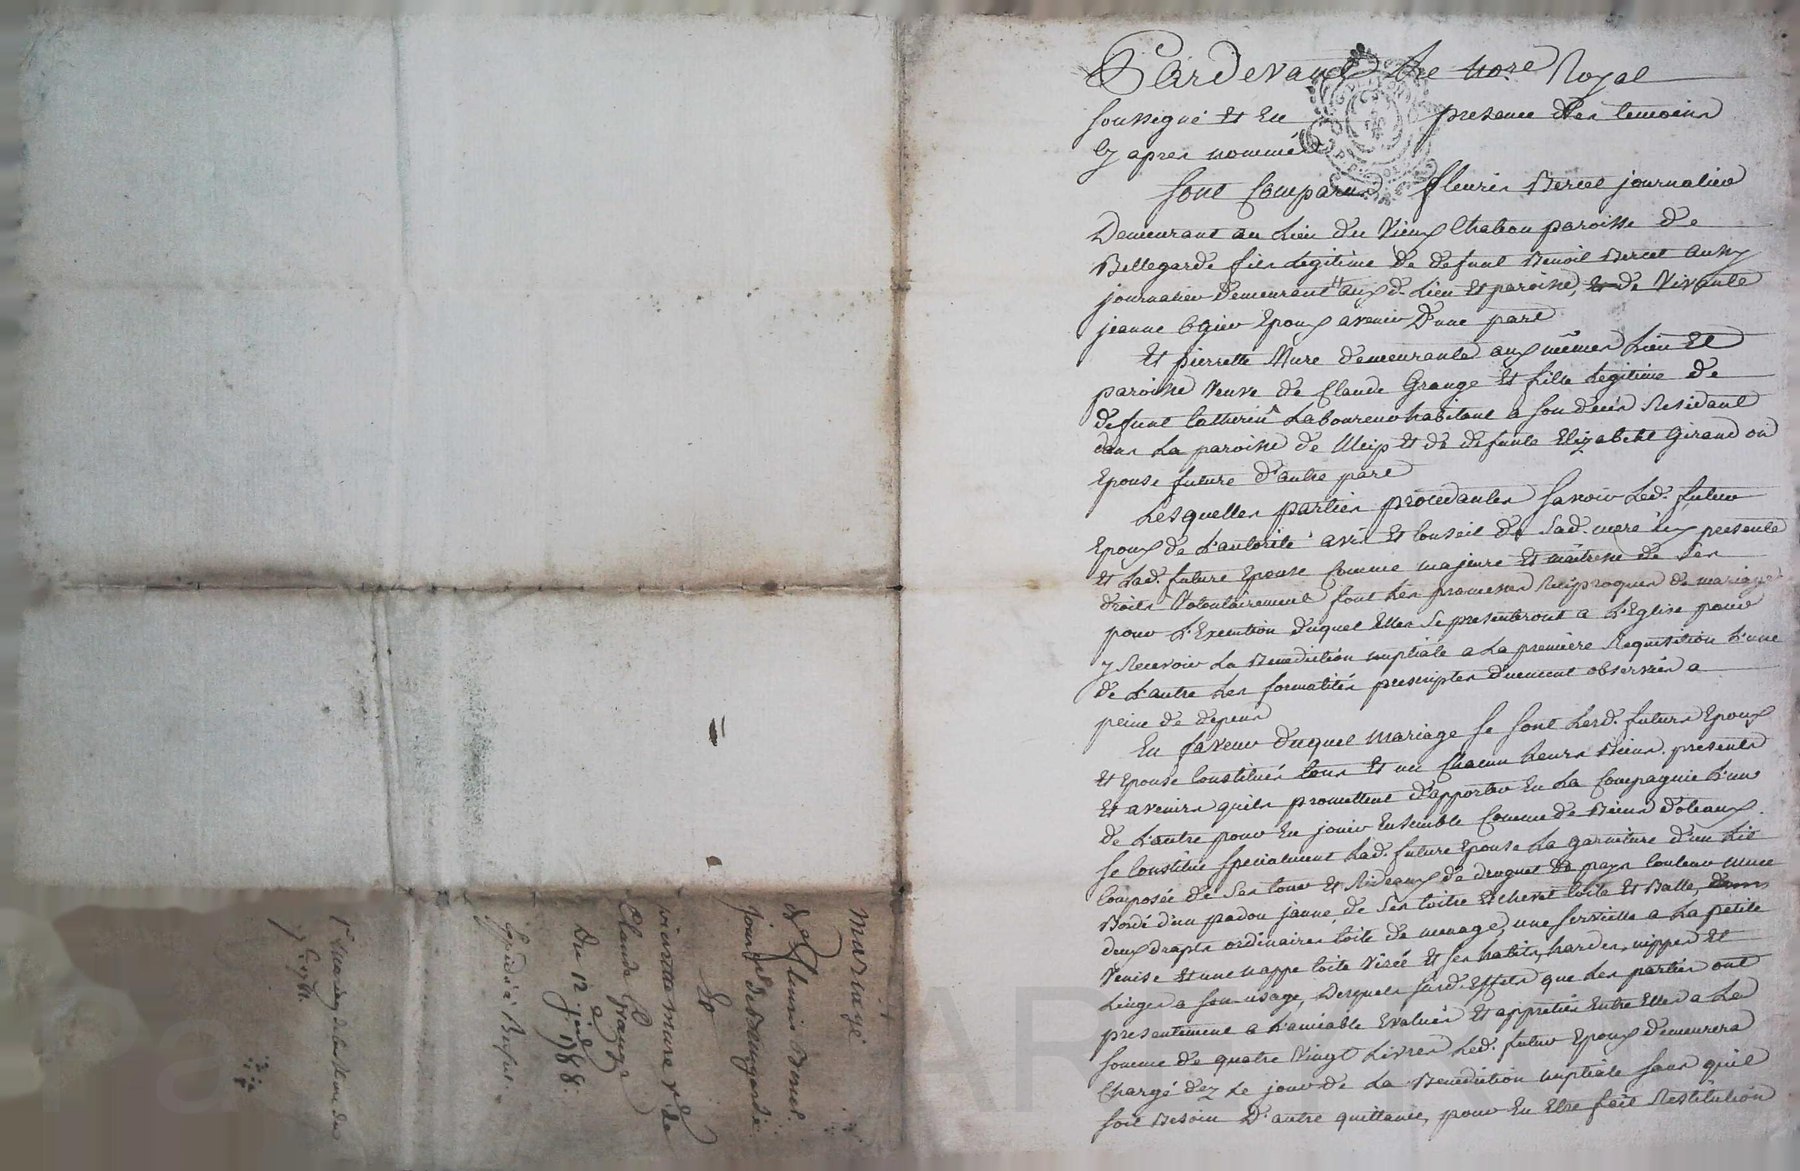 Pardevant Le no.re Royal
soussigné et En presence des temoins
cy apres nommés
sont Comparus fleuris Bercet journalier
Demeurant au Lieu du Vieux Chabon paroisse de
Bellegarde fils Legitime de defunt Benoit Bercet aussy
journalier demeurant aux d. Lieu et paroisse, et de Vivante
jeanne Ogier Epoux avenir D'une part
Et pierrette Mure demeurante aux mêmes Lieu et
paroisse Veuve de Claude Grange et fille Legitime de
defunt Catherin Laboureur habitant a son decès Residant
dans La paroisse de Meip et de defunte Elizabeht Giraudon
Epouse future d'autre part
Lesquelles parties procedantes savoir Led. futur
Epoux de L'autorité avis et Conseil de sad. mere icy presente
et Lad. future Epouse Comme majeure et maîtresse de ses
droits Volontairement font Les promesses Reciproques de mariage
pour L'Execution duquel Elles se presenteront a L'Eglise pour
y Recevoir La Benediction nuptiale a La premiere Requisition L'une
de L'autre Les formalités prescriptes duement observées a
peine de depens
En faveur duquel mariage se sont Lesd. futurs Epoux
et Epouse Constitués tous et un Chacun Leurs Biens presents
et avenirs quils promettent d'apporter En La Compagnie L'un
de L'autre pour En jouir Ensemble Comme de Biens dotaux
se Constitue specialement Lad. future Epouse La garniture d'un Lit
Composée de ses tour et Rideaux de droguet de pays Couleur
Bordé d'un padou jaune, de ses Coitre et chevet Coite et Balle,
deux draps ordinaires toile de menage, une serviette a La petite
Venise et une nappe toile Visée et ses habits, hardes, nippes et
Linges a son usage, Desquels susd. Effets que Les parties ont
presentement a L'amiable Evalués et appretiés Entre Elles a La
somme de quatre Vingt Livres Led. futur Epoux demeurera
Chargé dez Le jour de La Benediction nuptiale sans quil
soit Besoin D'autre quittance, pour En Etre fait Restitution
Mariage
de fleuris Bercet
jour.er de Bellegarde
Et
pierrette mure v.e de
Claude Grange
Du 12 1788.
Expedié